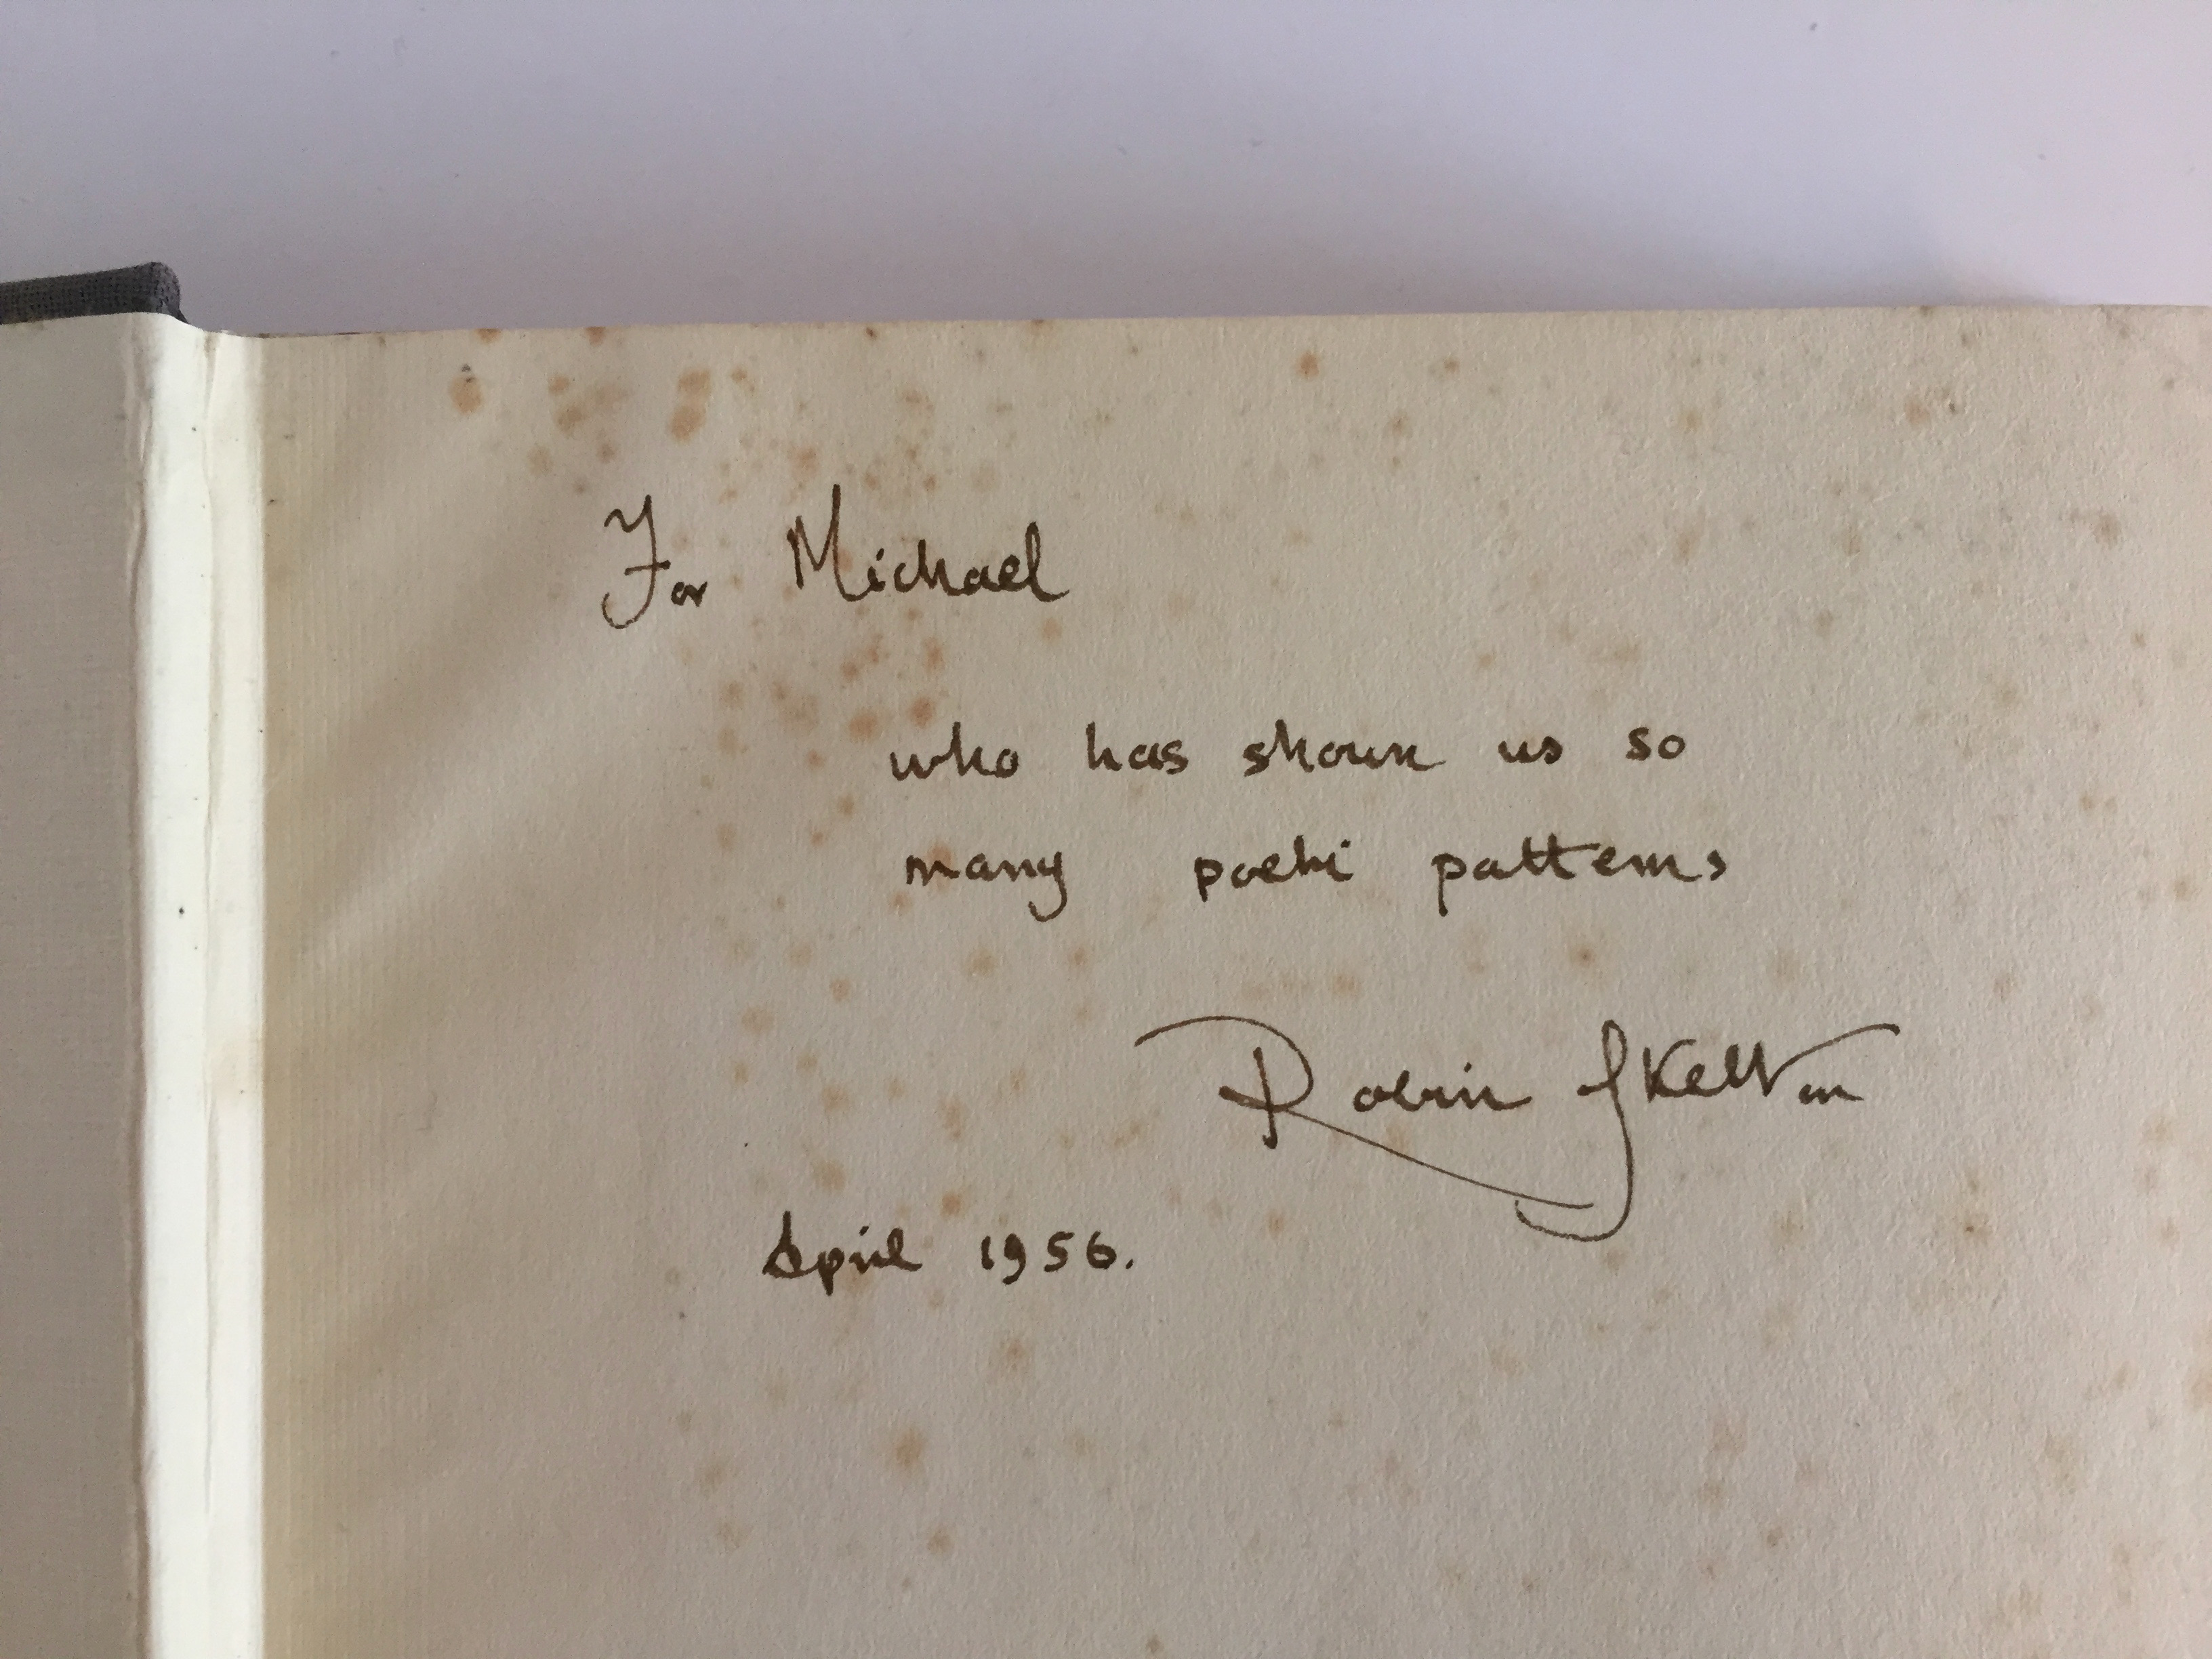 For Michael
who has shown us so
many poetic patterns
Robin Skelton
April 1956.